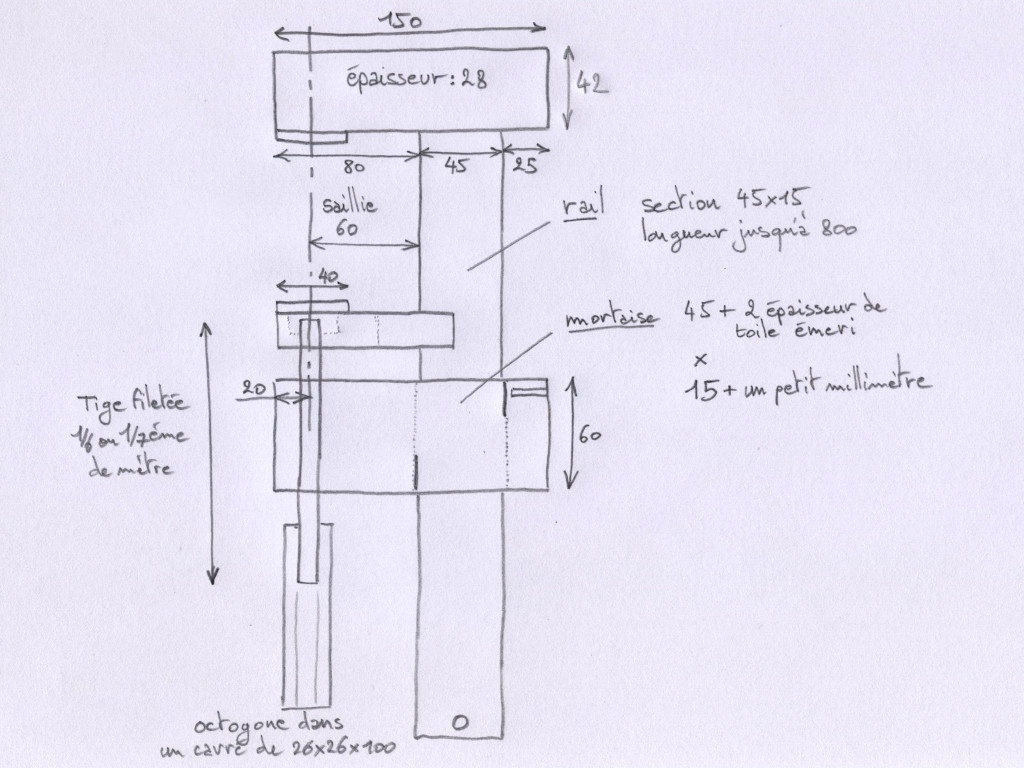 150
épaisseur : 28
42
80
45
25
saillie
60
rail
section 45x15
longueur jusqu'à 800
40
mortaise
45 + 2 épaisseur de
toile émeri
x
15 + un petit millimètre
20
Tige filetée
1/6 ou 1/7éme
de mètre
60
octogone dans
un carré de 26x26x100